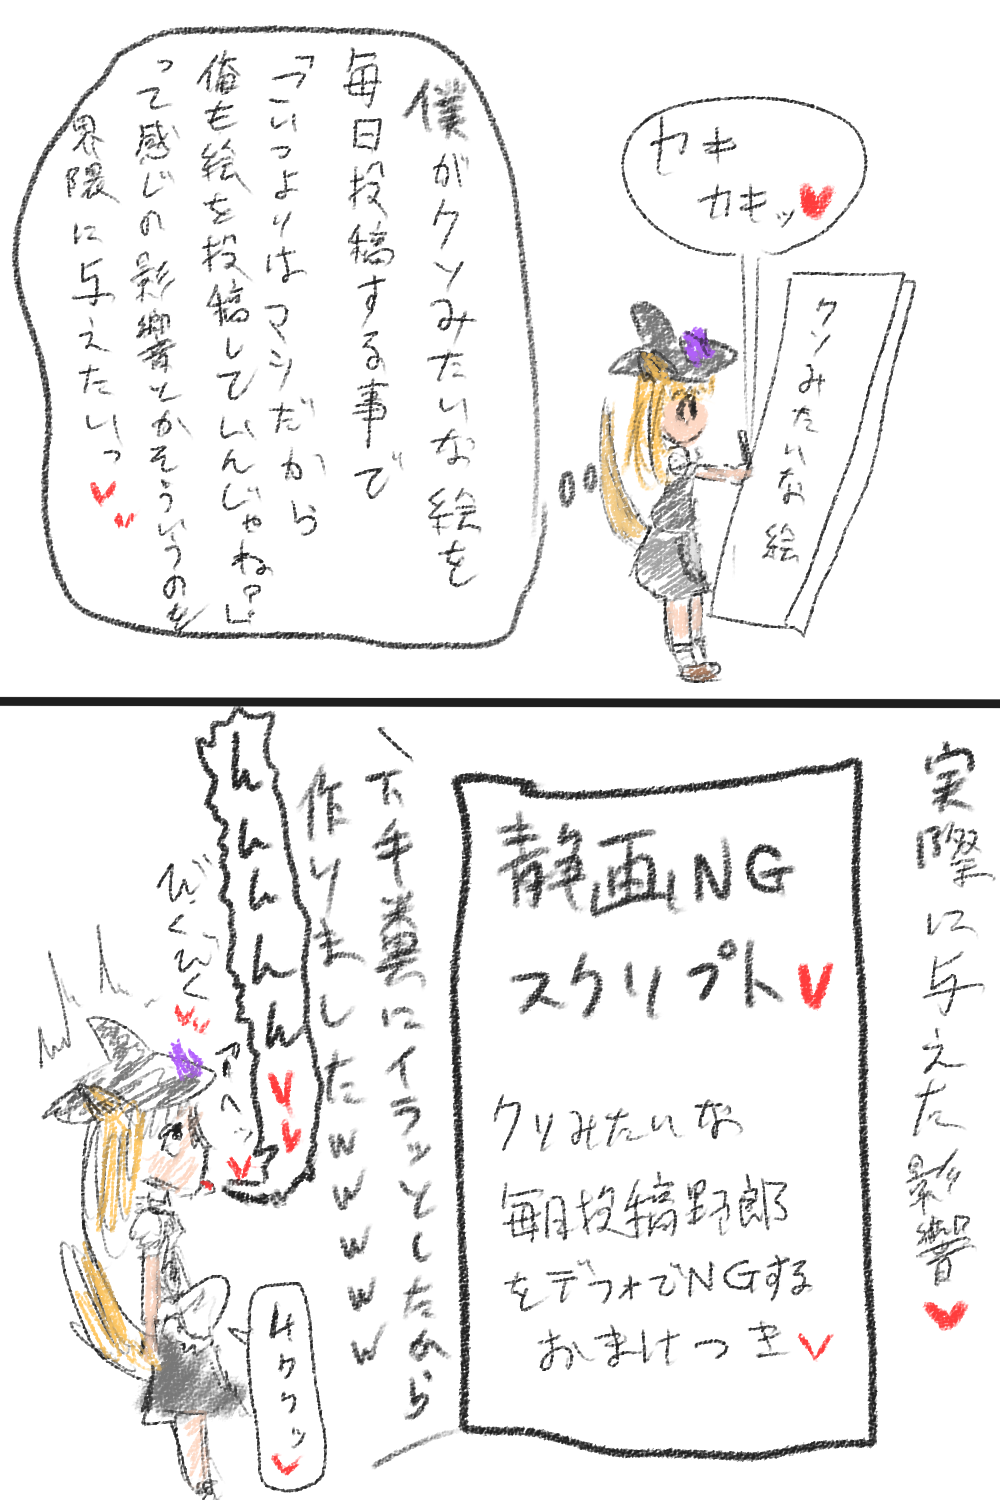 カキ
カキッ
クソみたいな絵
僕がクソみたいな絵を
毎日投稿する事で
「こいつよりはマシだから
俺も絵を投稿していんじゃね?」
って感じの影響とかそういうのを
界隈に与えたいっ
実際に与えた影響
静画NG
スクリプト
クソみたいな
毎日投稿野郎
をデフォでNGする
おまけつき
下手糞にイラッとしたから
作りましたwwwww
んんんんん
アヘッ
びくびく
ムククッ